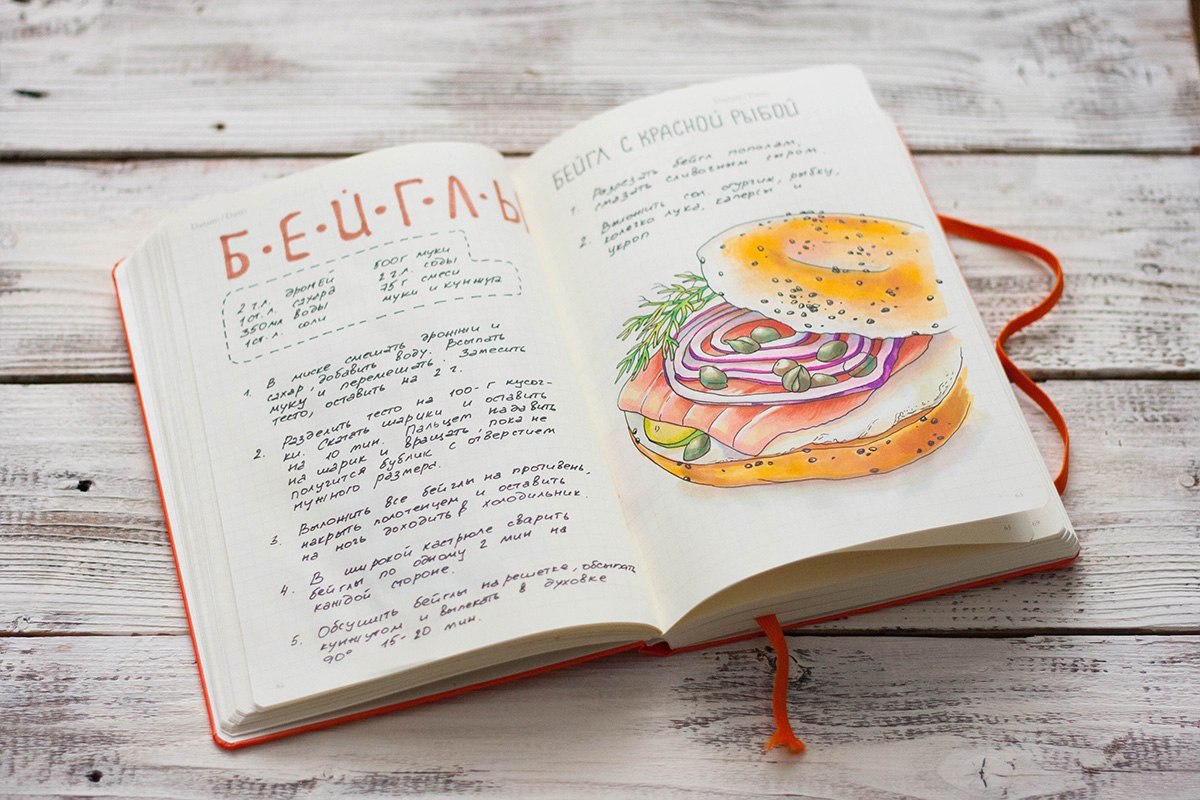 Б·Е·Й·Г·Л·Ы
2 ч.л. дрожжей
1 ст. л. сахара
350мл воды
1 ст. л. соли
500г муки
2 ч.л. соды
25 г смеси
муки и кунжута
1. В миске смешать дрожжи и
сахар, добавить воду. Всыпать
муку и перемешать. Замесить
тесто, оставить на 2 г.
2. Разделить тесто на 100-г кусоч-
ки. Скатать шарики и оставить
на 10 мин. Пальцем надавить
на шарик и вращать, пока не
получится бублик с отверстием
нужного размера.
3. Выложить все бейглы на противень,
накрыть полотенцем и оставить
на ночь доходить в холодильник.
4. В широкой кастрюле сварить
бейглы по одному 2 мин на
каждой стороне.
5. Обсушить бейглы на решетке, обсыпать
кунжутом и выпекать в духовке
90° 15-20 мин.
БЕЙГЛ С КРАСНОЙ РЫБОЙ
1. Разрезать бейгл пополам,
смазать сливочным сыром.
2. Выложить сол. огурчик, рыбку,
колечка лука, каперсы и
укроп